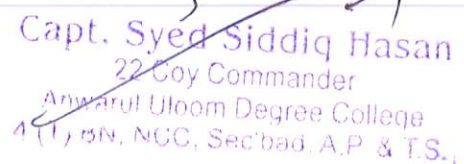 Capt. Syed Siddiq Hasan
22 Coy Commander
Anwarul Uloom Degree College
4 (T) BN, NCC, Sec'bad, A.P & T.S.,